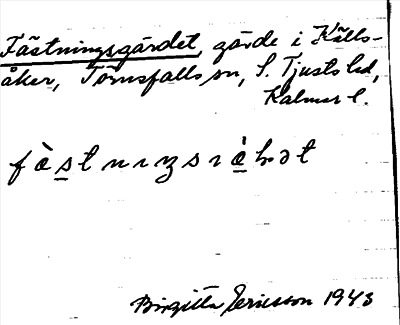 Fästningsgärdet, gärde i Källs-
åker, Törnsfalls sn, S. Tjusts hd,
Kalmar l.
Birgitta Ericsson 1943